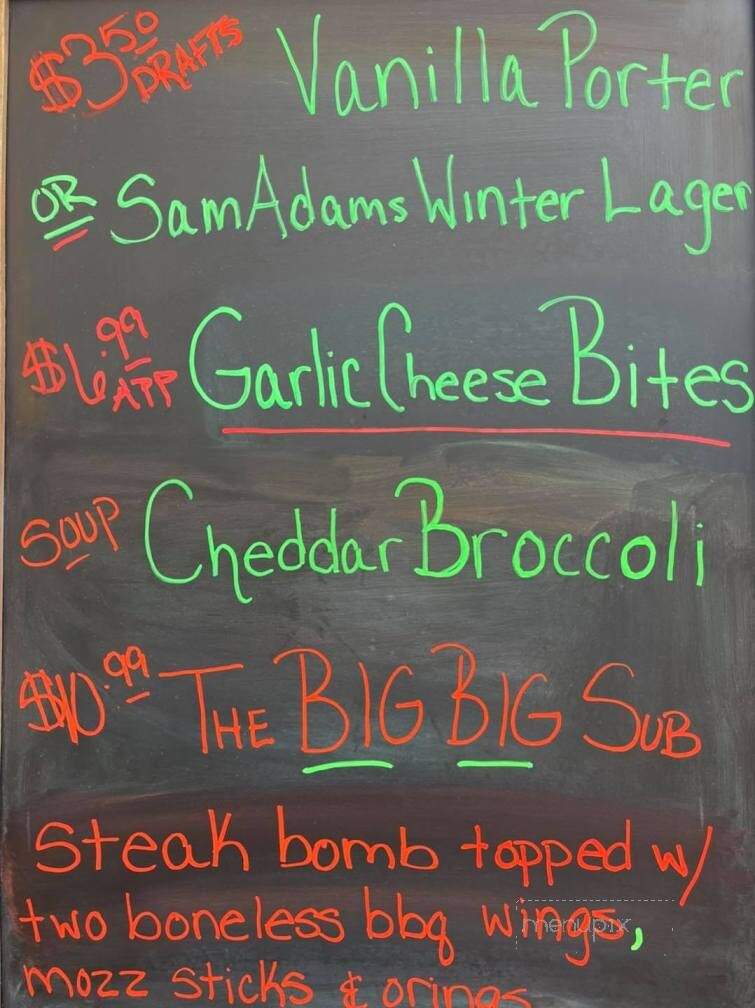 $3.50 DRAFTS Vanilla Porter
OR Sam Adams Winter Lager
$6.99 APP Garlic Cheese Bites
SOUP Cheddar Broccoli
$10.99 THE BIG BIG SUB
Steak bomb topped w/
two boneless bbq wings,
menupix
mozz sticks & orings